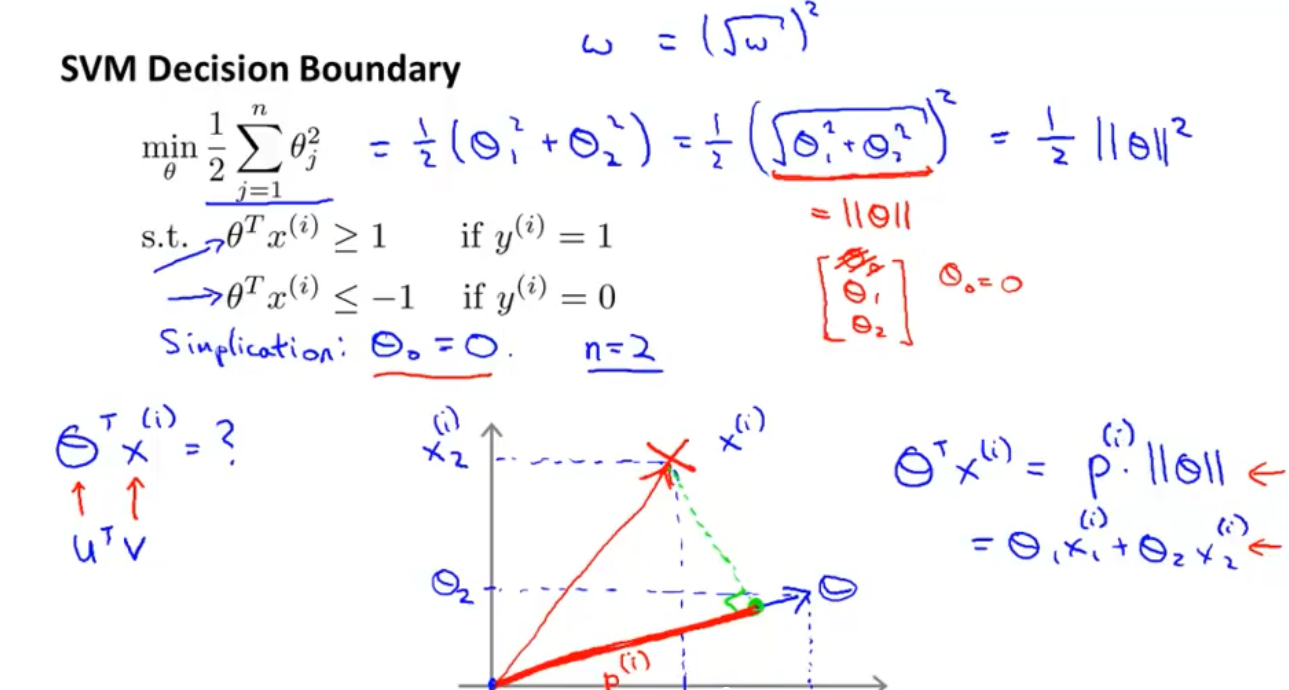 ω = (√ω)²
SVM Decision Boundary
min_θ 1/2 ∑_{j=1}^{n} θ_j² = 1/2 (θ₁² + θ₂²) = 1/2 (√(θ₁² + θ₂²))² = 1/2 ||θ||²
= ||θ||
s.t. → θᵀx⁽ⁱ⁾ ≥ 1 if y⁽ⁱ⁾ = 1
→ θᵀx⁽ⁱ⁾ ≤ −1 if y⁽ⁱ⁾ = 0
[θ₀ θ₁ θ₂] θ₀ = 0
Simplication: θ₀ = 0. n=2
θᵀx⁽ⁱ⁾ = ?
↑ ↑
uᵀv
x₂⁽ⁱ⁾
x⁽ⁱ⁾
θ₂
θ
p⁽ⁱ⁾
θᵀx⁽ⁱ⁾ = p⁽ⁱ⁾ · ||θ|| ←
= θ₁x₁⁽ⁱ⁾ + θ₂x₂⁽ⁱ⁾ ←